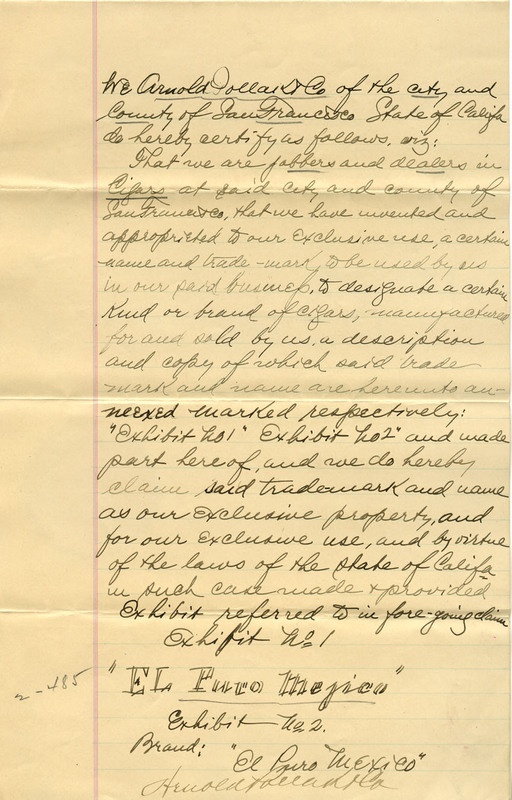 We Arnold Pollak & Co of the city and
County of San Francisco State of Califa
do hereby certify as follows, viz:
That we are jobbers and dealers in
Cigars at said city and county of
San Francisco, that we have invented and
appropriated to our Exclusive use, a certain
name and trade-mark, to be used by us
in our said business, to designate a certain
Kind or brand of Cigars, manufactured
for and sold by us, a description
and copy of which said trade
mark and name are hereunto an-
nexed marked respectively:
"Exhibit No 1" Exhibit No 2" and made
part here of, and we do hereby
claim said trademark and name
as our Exclusive property, and
for our Exclusive use, and by virtue
of the laws of the State of Califa
in such case made & provided
Exhibit referred to in fore-going claim
Exhibit No 1
"EL Puro Mejico"
2-485
Exhibit No 2.
Brand: "El Puro Mexico"
Arnold Pollak & Co